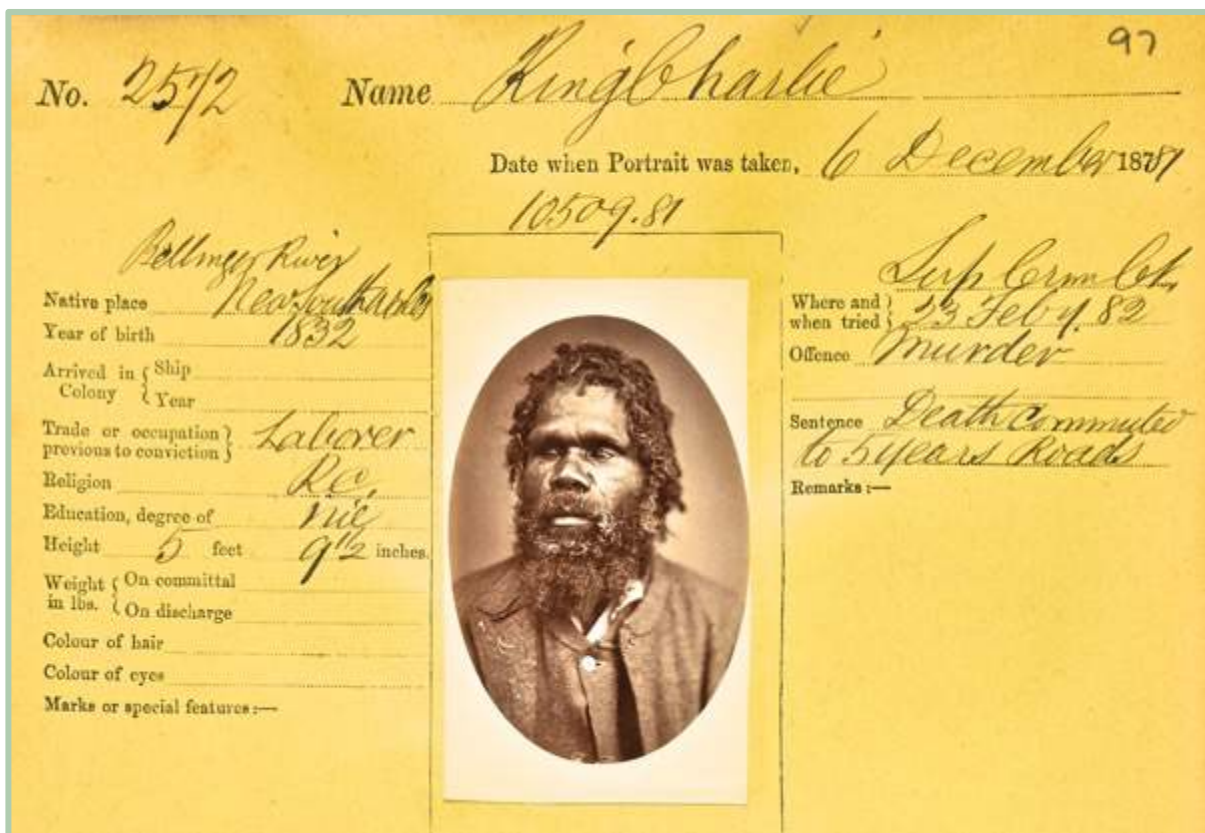 97
No. 2572 Name King Charlie
Date when Portrait was taken, 6 December 1881
10509.81
Bellinger River
Native place New South Wales
Year of birth 1832
Arrived in Colony { Ship
Year
Trade or occupation previous to conviction } Laborer
Religion R.C.
Education, degree of nil
Height 5 feet 9 1/2 inches.
Weight in lbs. { On committal
On discharge
Colour of hair
Colour of eyes
Marks or special features:—
Sup Crim Ct.
Where and when tried } 23 Feby. 82
Offence Murder
Sentence Death Commuted
to 5 years Roads
Remarks:—